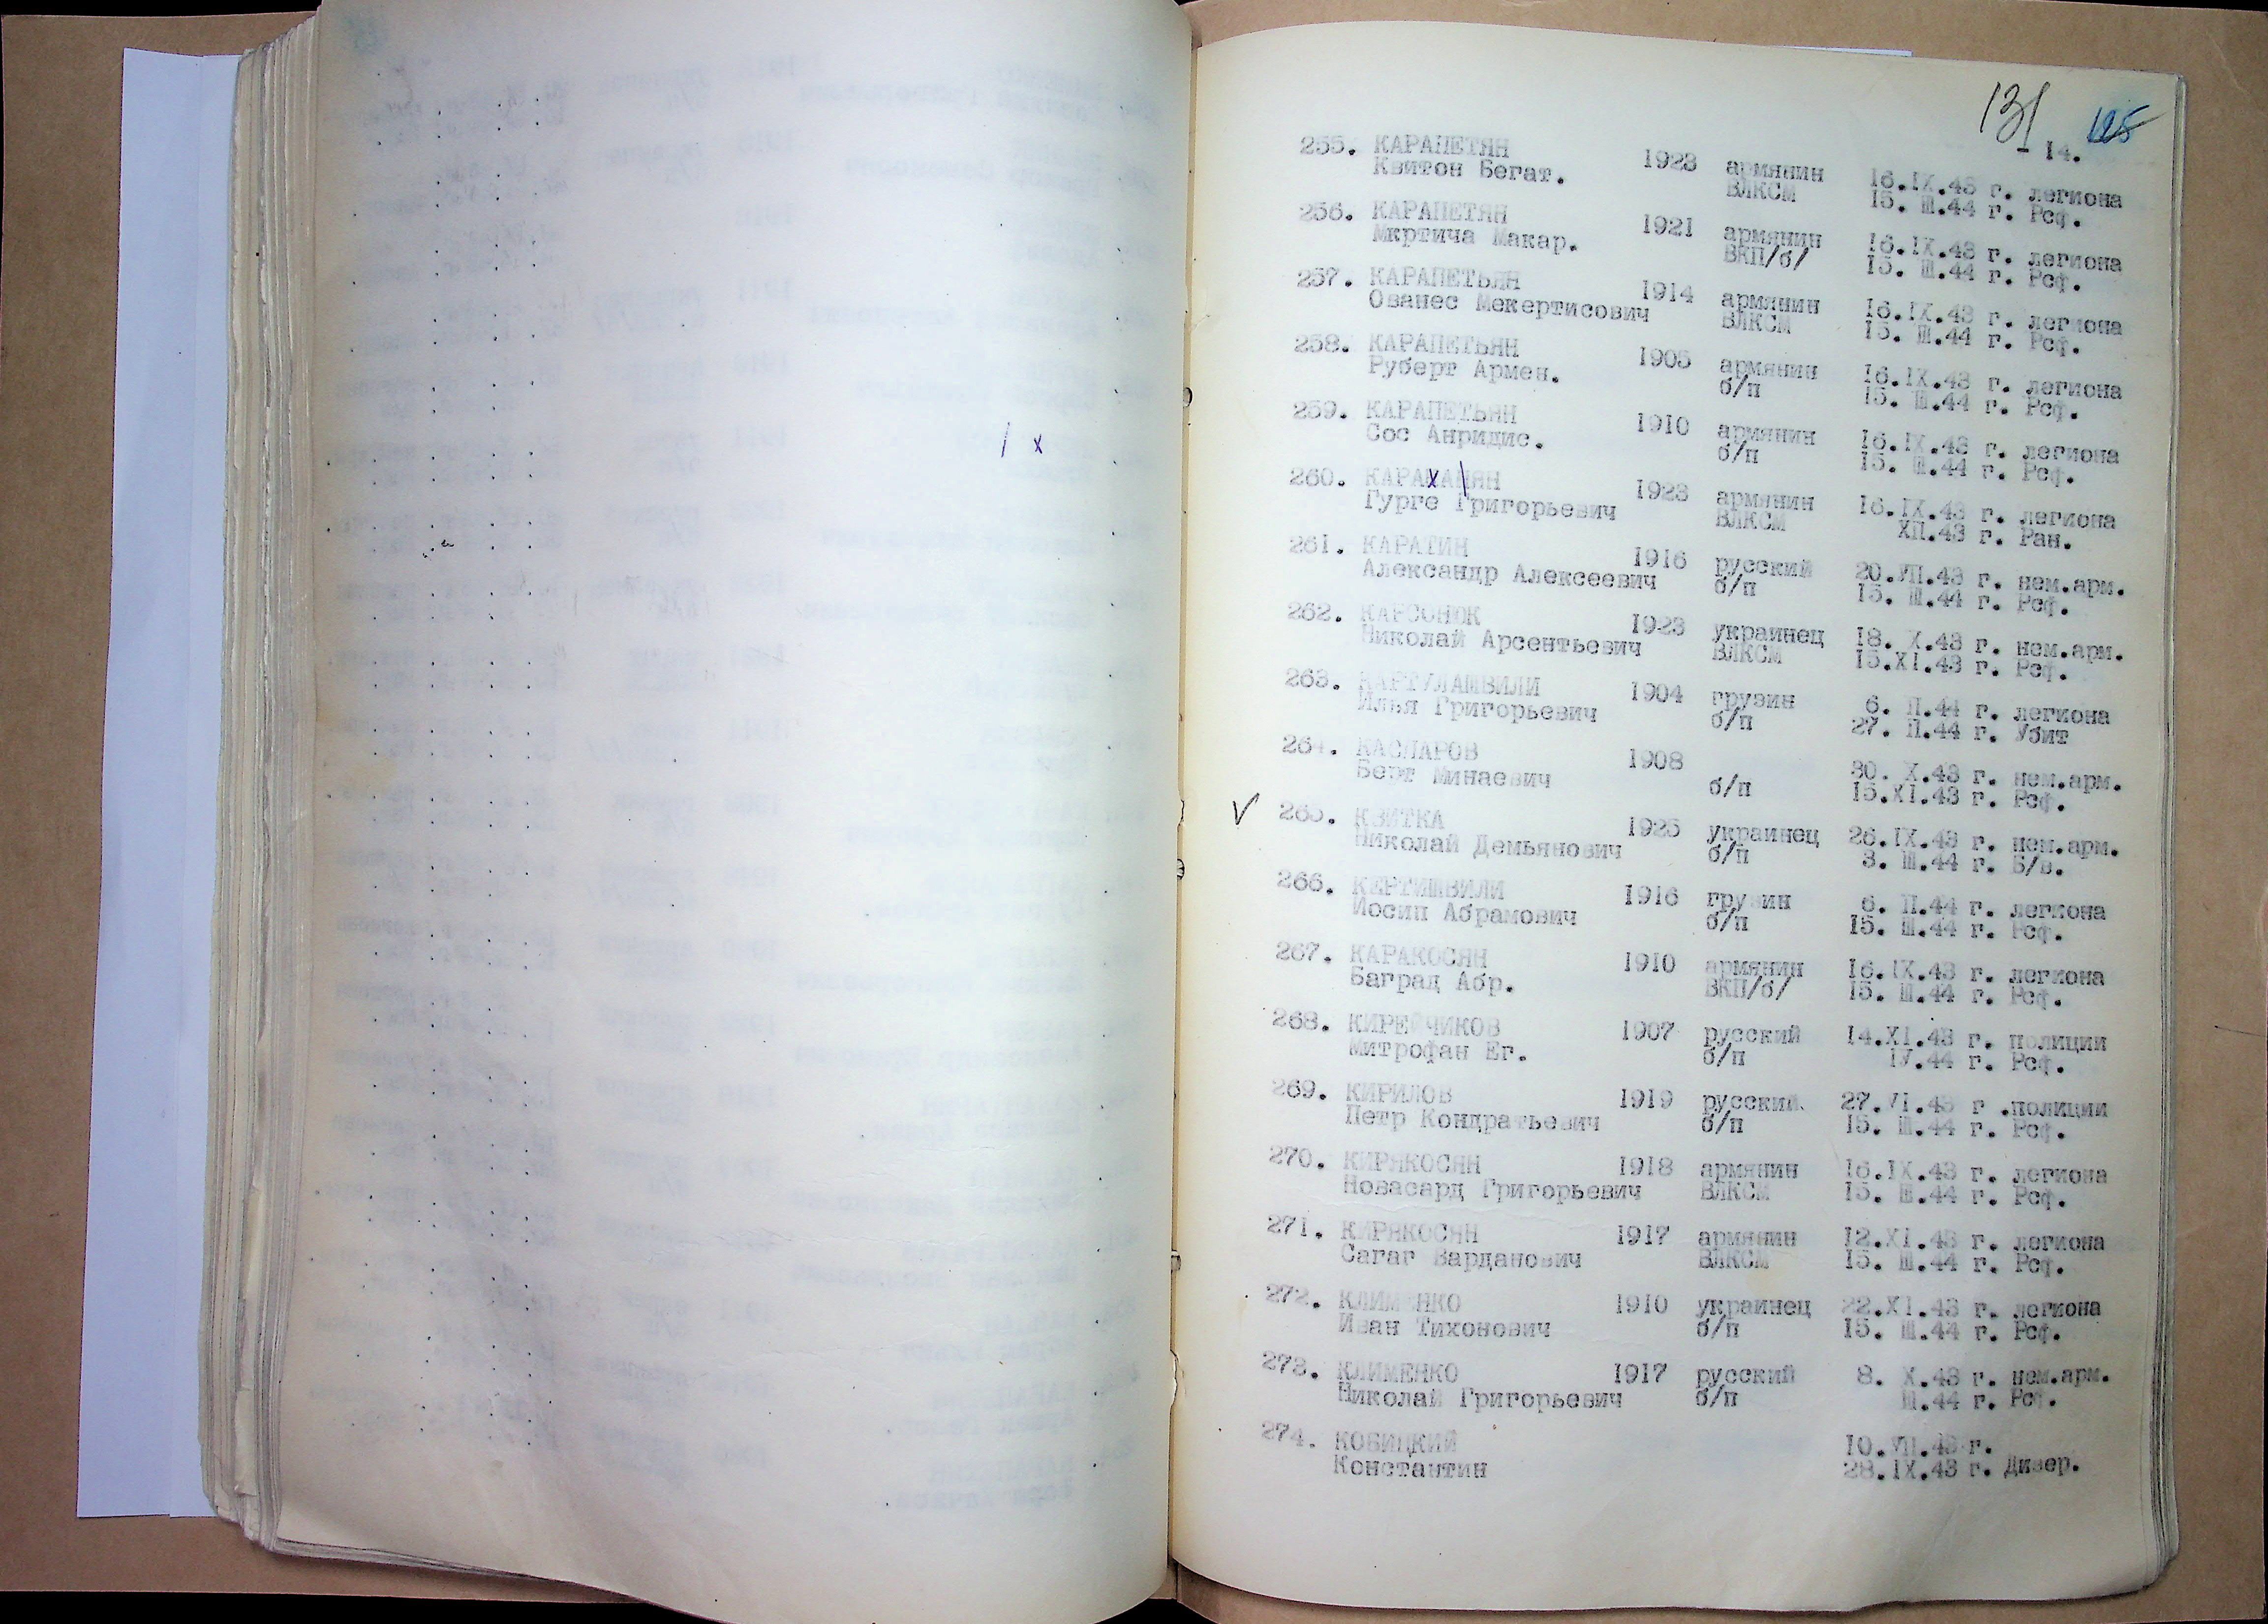 131 125
- 14.
255. КАРАПЕТЯН 1923 армянин 16.IX.43 г. легиона
Квитон Бегат. ВЛКСМ 15. Ш.44 г. Рсф.
256. КАРАПЕТЯН 1921 армянин 16.IX.43 г. легиона
Мкртича Макар. ВКП/б/ 15. Ш.44 г. Рсф.
257. КАРАПЕТЬЯН 1914 армянин 16.IX.43 г. легиона
Ованес Мекертисович ВЛКСМ 15. Ш.44 г. Рсф.
258. КАРАПЕТЬЯН 1905 армянин 16.IX.43 г. легиона
Руберт Армен. б/п 15. Ш.44 г. Рсф.
259. КАРАПЕТЬЯН 1910 армянин 16.IX.43 г. легиона
Сос Анридис. б/п 15. Ш.44 г. Рсф.
260. 1923 армянин 16.IX.43 г. легиона
Гурге Григорьевич ВЛКСМ XП.43 г. Ран.
261. КАРАТИН 1916 русский 20.УП.43 г. нем.арм.
Александр Алексеевич б/п 15. Ш.44 г. Рсф.
262. КАРСОНЮК 1923 украинец 18. X.43 г. нем.арм.
Николай Арсентьевич ВЛКСМ 15.XI.43 г. Рсф.
263. КАРТУЛАШВИЛИ 1904 грузин 6. П.44 г. легиона
Илья Григорьевич б/п 27. П.44 г. Убит
264. КАСПАРОВ 1908 30. X.43 г. нем.арм.
Берт Минаевич б/п 15.XI.43 г. Рсф.
V 265. КВИТКА 1925 украинец 26.IX.43 г. нем.арм.
Николай Демьянович б/п 3. Ш.44 г. Б/в.
266. КЕРТИШВИЛИ 1916 грузин 6. П.44 г. легиона
Иосип Абрамович б/п 15. Ш.44 г. Рсф.
267. КАРАКОСЯН 1910 армянин 16.IX.43 г. легиона
Баград Абр. ВКП/б/ 15. Ш.44 г. Рсф.
268. КИРЕЙЧИКОВ 1907 русский 14.XI.43 г. полиции
Митрофан Ег. б/п IУ.44 г. Рсф.
269. КИРИЛОВ 1919 русский 27.УI.43 г .полиции
Петр Кондратьевич б/п 15. Ш.44 г. Рсф.
270. КИРЯКОСЯН 1918 армянин 16.IX.43 г. легиона
Новасард Григорьевич ВЛКСМ 15. Ш.44 г. Рсф.
271. КИРЯКОСЯН 1917 армянин 12.XI.43 г. легиона
Сагаг Варданович ВЛКСМ 15. Ш.44 г. Рсф.
272. КЛИМЕНКО 1910 украинец 22.XI.43 г. легиона
Иван Тихонович б/п 15. Ш.44 г. Рсф.
273. КЛИМЕНКО 1917 русский 8. X.43 г. нем.арм.
Николай Григорьевич б/п Ш.44 г. Рсф.
274. КОБИЦКИЙ 10.УП.43 г.
Константин 28.IX.43 г. Дивер.